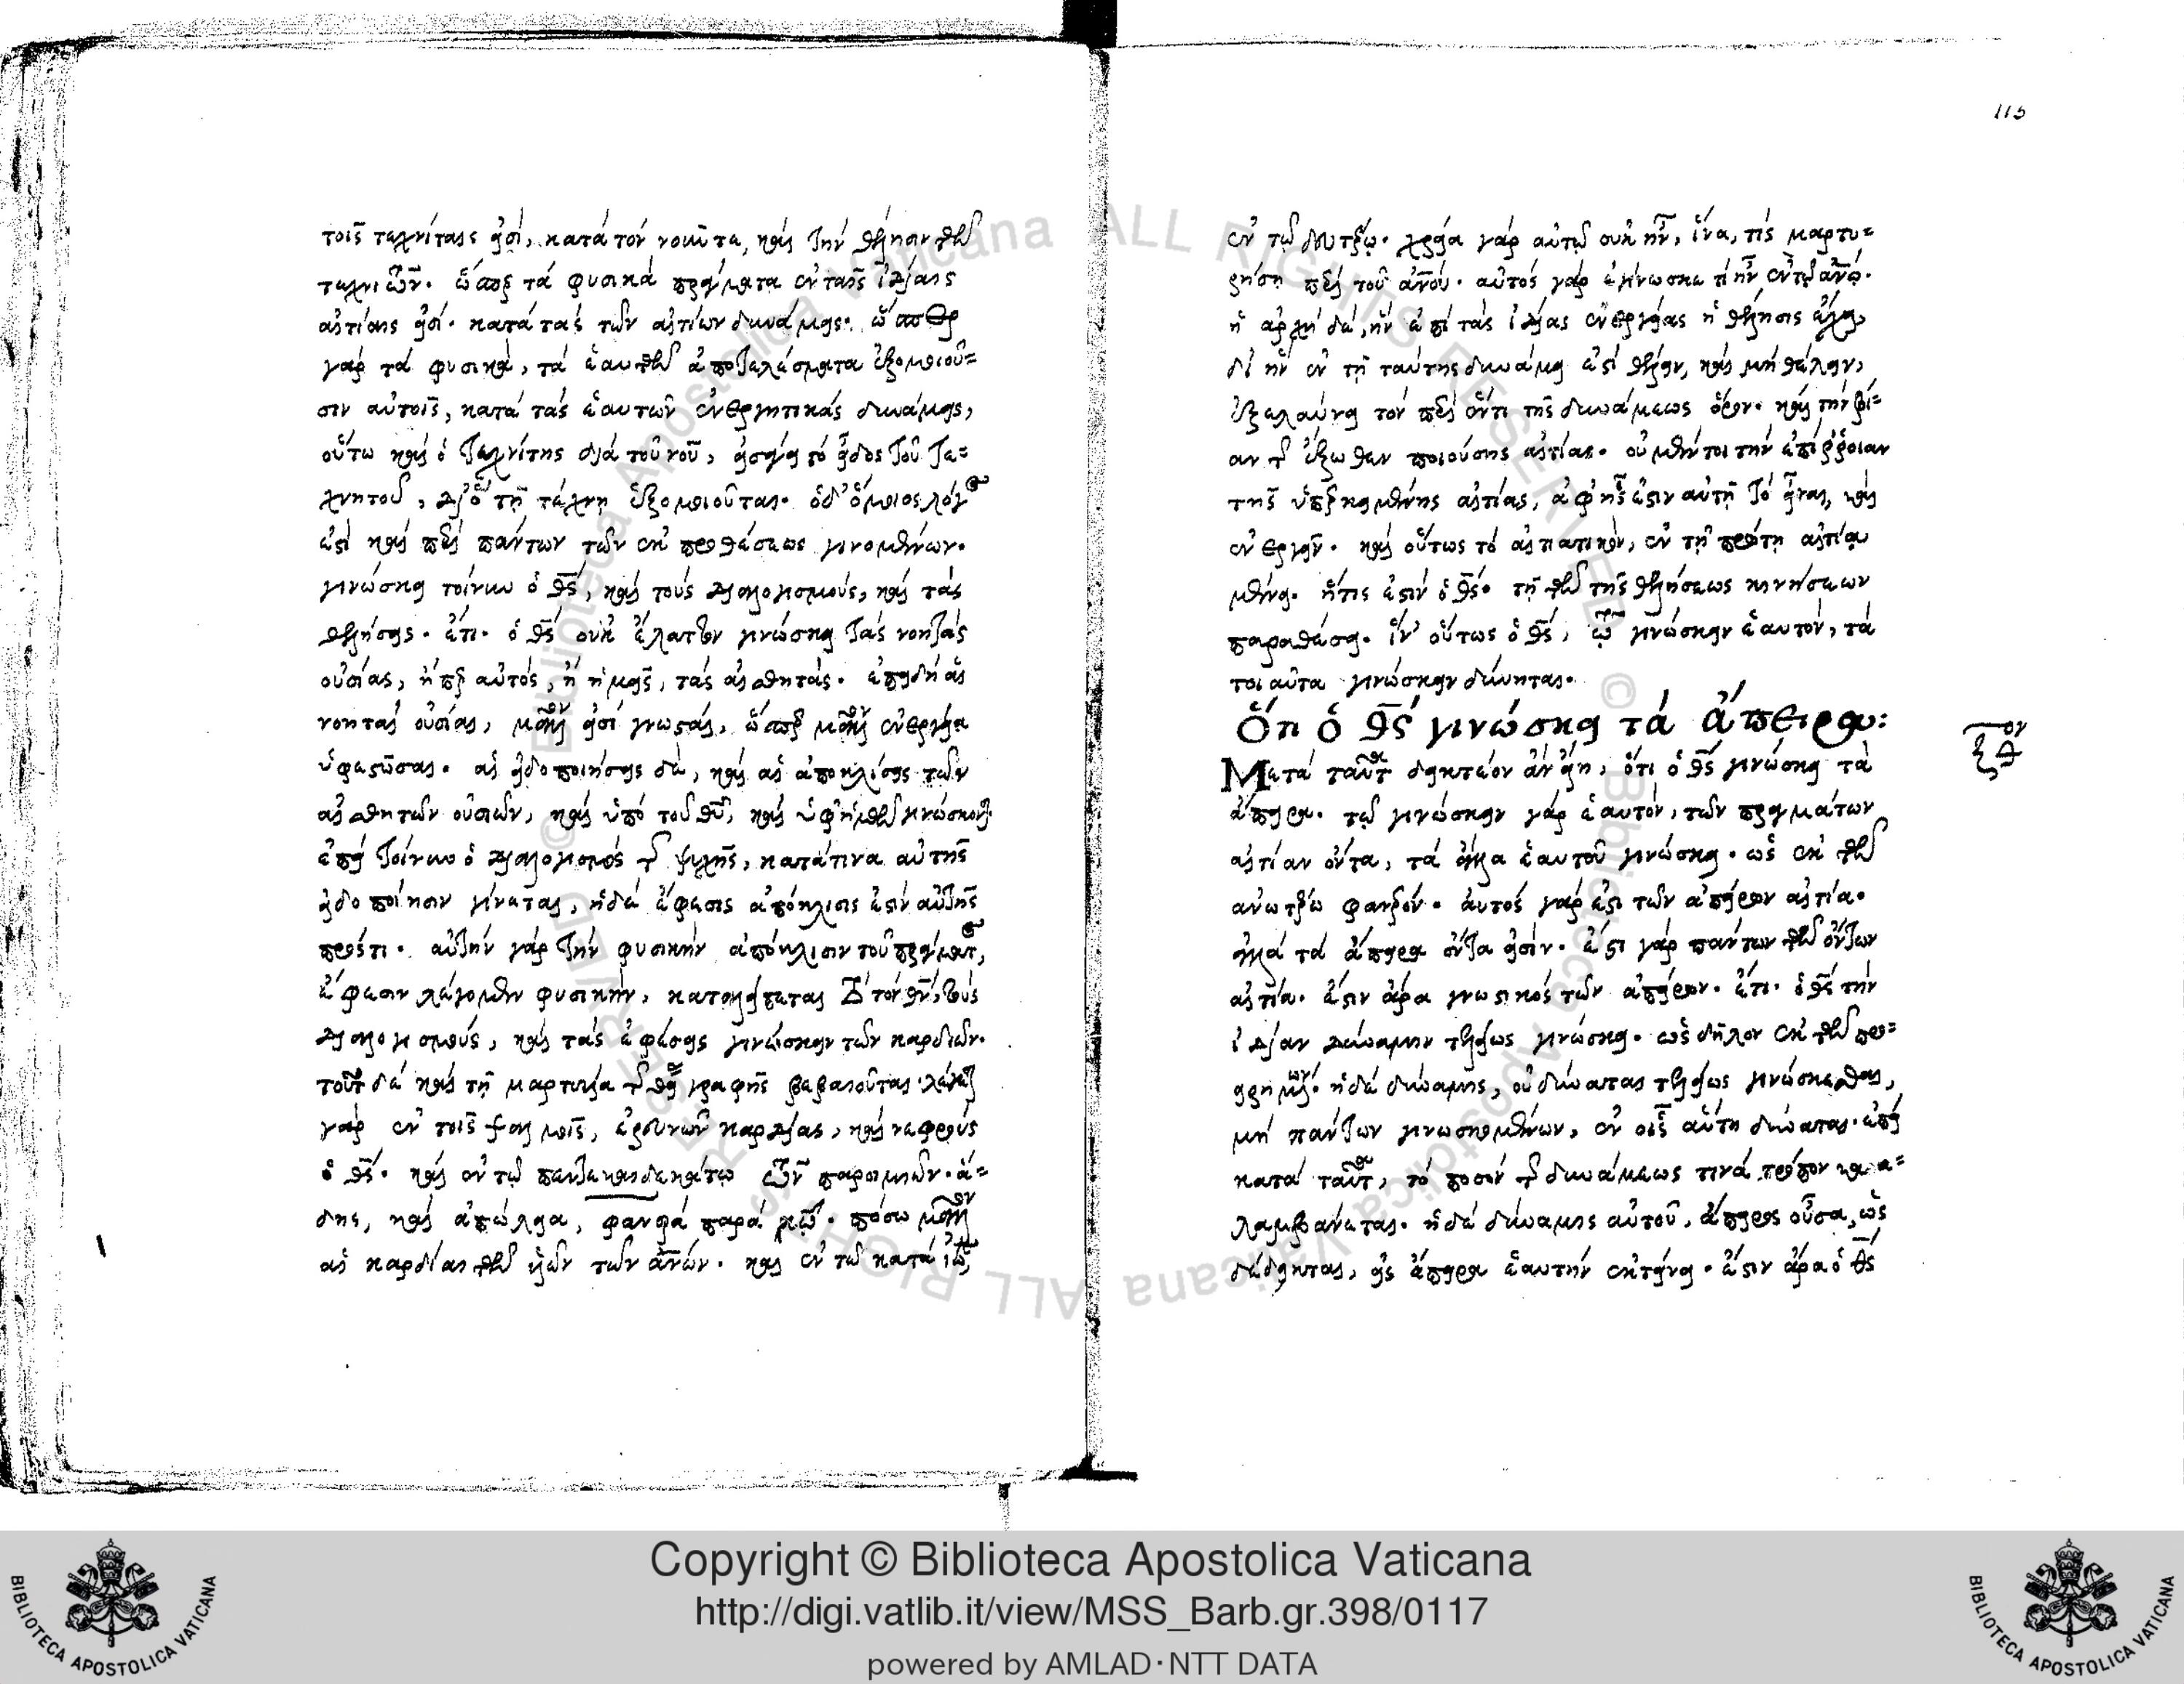 τοῖς τεχνίταις εἰσί, κατά τόν νοῦν τε, καί τήν θέλησιν τῶν
τεχνιτῶν. ὥσπερ τά φυσικά πράγματα ἐν ταῖς ἰδίαις
αἰτίαις εἰσί. κατά τάς τῶν αἰτίων δυνάμεις. ὥσπερ
γάρ τά φυσικά, τά ἑαυτῶν ἀποτελέσματα ἐξομοιοῦ=
σιν αὐτοῖς, κατά τάς ἑαυτῶν ἐνεργητικάς δυνάμεις,
οὕτω καί ὁ τεχνίτης διά τοῦ νοῦ, εἰσάγει τό εἶδος τοῦ τε=
χνητοῦ, δι' οὗ τῇ τέχνῃ ἐξομοιοῦται. ὁ δ' ὅμοιος λόγος
ἐστί καί περί πάντων τῶν ἐκ προθέσεως γινομένων.
γινώσκει τοίνυν ὁ θς, καί τούς διαλογισμούς, καί τάς
θελήσεις. ἔτι. ὁ θς οὐκ ἔλαττον γινώσκει τάς νοητάς
οὐσίας, ἤπερ αὐτός, ἤ ἡμεῖς, τάς αἰσθητάς. ἐπειδή αἱ
νοηταί οὐσίαι, μᾶλλον εἰσί γνωσταί, ὥσπερ μᾶλλον ἐνεργείᾳ
ὑφεστῶσαι. αἱ εἰδοποιήσεις δέ, καί αἱ ἀποκλίσεις τῶν
αἰσθητῶν οὐσιῶν, καί ὑπό τοῦ θυ, καί ὑφ' ἡμῶν γινώσκονται.
ἐπεί τοίνυν ὁ διαλογισμός τῆς ψυχῆς, κατά τινα αὐτῆς
εἰδοποίησιν γίνεται, ἡ δέ ἔφεσις ἀπόκλισις ἐστίν αὐτῆς
πρός τι. αὐτήν γάρ τήν φυσικήν ἀπόκλισιν τοῦ πράγματος,
ἔφεσιν λέγομεν φυσικήν, καταλείπεται τόν θν, τούς
διαλογισμούς, καί τάς ἐφέσεις γινώσκειν τῶν καρδιῶν.
τοῦτο δέ καί τῇ μαρτυρίᾳ τῆς θείας γραφῆς βεβαιοῦται. λέγεται
γάρ ἐν τοῖς ψαλμοῖς, ἐρευνῶν καρδίας, καί νεφρούς
ὁ θς. καί ἐν τῷ πεντεκαιδεκάτῳ τῶν παροιμιῶν. ἅ=
δης, καί ἀπώλεια, φανερά παρά κω. πόσω μᾶλλον
αἱ καρδίαι τῶν υἱῶν τῶν ἀνων. καί ἐν τῷ κατά ἰω,
115
ἐν τῷ δευτέρῳ. χρεία γάρ αὐτῷ οὐκ ἦν, ἵνα, τίς μαρτυ=
ρήσῃ περί τοῦ ἀνου. αὐτός γάρ ἐγίνωσκε τί ἦν ἐν τῷ ἀνω.
ἡ ἀρχή δέ, ἥν ἐπί τάς ἰδίας ἐνεργείας ἡ θέλησις ἔχει,
δι' ἥν ἐν τῇ ταύτης δυνάμει ἐστί θέλειν, καί μή θέλειν,
ἐξελαύνει τόν πρός ἕν τι τῆς δυνάμεως ὅρον. καί τήν βί=
αν τῆς ἔξωθεν ποιούσης αἰτίας. οὐ μέντοι τήν ἐπίρροιαν
τῆς ὑπερκειμένης αἰτίας, ἀφ' ἧς ἐστίν αὐτῇ τό εἶναι, καί
ἐνεργεῖν. καί οὕτως τό αἰτιατικόν, ἐν τῇ πρώτῃ αἰτίᾳ
μένει. ἥτις ἐστίν ὁ θς. τῇ τῶν τῆς θελήσεως κινήσεων
παραθέσει. ἵν' οὕτως ὁ θς, τῷ γινώσκειν ἑαυτόν, τά
τοιαῦτα γινώσκειν δύνηται.
Ὅτι ὁ θς γινώσκει τά ἄπειρα:
ξθον
Μετά ταῦτα δεικτέον ἄν εἴη, ὅτι ὁ θς γινώσκει τά
ἄπειρα. τῷ γινώσκειν γάρ ἑαυτόν, τῶν πραγμάτων
αἰτίαν ὄντα, τά ἄλλα ἑαυτοῦ γινώσκει. ὡς ἐκ τῶν
ἀνωτέρω φανερόν. αὐτός γάρ ἐστι τῶν ἀπείρων αἰτία.
ἀλλά τά ἄπειρα ὄντα εἰσίν. ἔστι γάρ πάντων τῶν ὄντων
αἰτία. ἔστιν ἄρα γνωστικός τῶν ἀπείρων. ἔτι. ὁ θς τήν
ἰδίαν δύναμιν τελείως γινώσκει. ὡς δῆλον ἐκ τῶν προ=
ειρημένων. ἡ δέ δύναμις, οὐ δύναται τελείως γινώσκεσθαι,
μή πάντων γινωσκομένων, ἐν οἷς αὕτη δύναται. ἐπεί
κατά ταῦτα, τό ποσόν τῆς δυνάμεως τινά τρόπον κατα=
λαμβάνεται. ἡ δέ δύναμις αὐτοῦ, ἄπειρος οὖσα, ὡς
δέδεικται, εἰς ἄπειρα ἑαυτήν ἐκτείνει. ἔστιν ἄρα ὁ θς
Copyright © Biblioteca Apostolica Vaticana
http://digi.vatlib.it/view/MSS_Barb.gr.398/0117
powered by AMLAD·NTT DATA
BIBLIOTECA APOSTOLICA VATICANA
BIBLIOTECA APOSTOLICA VATICANA